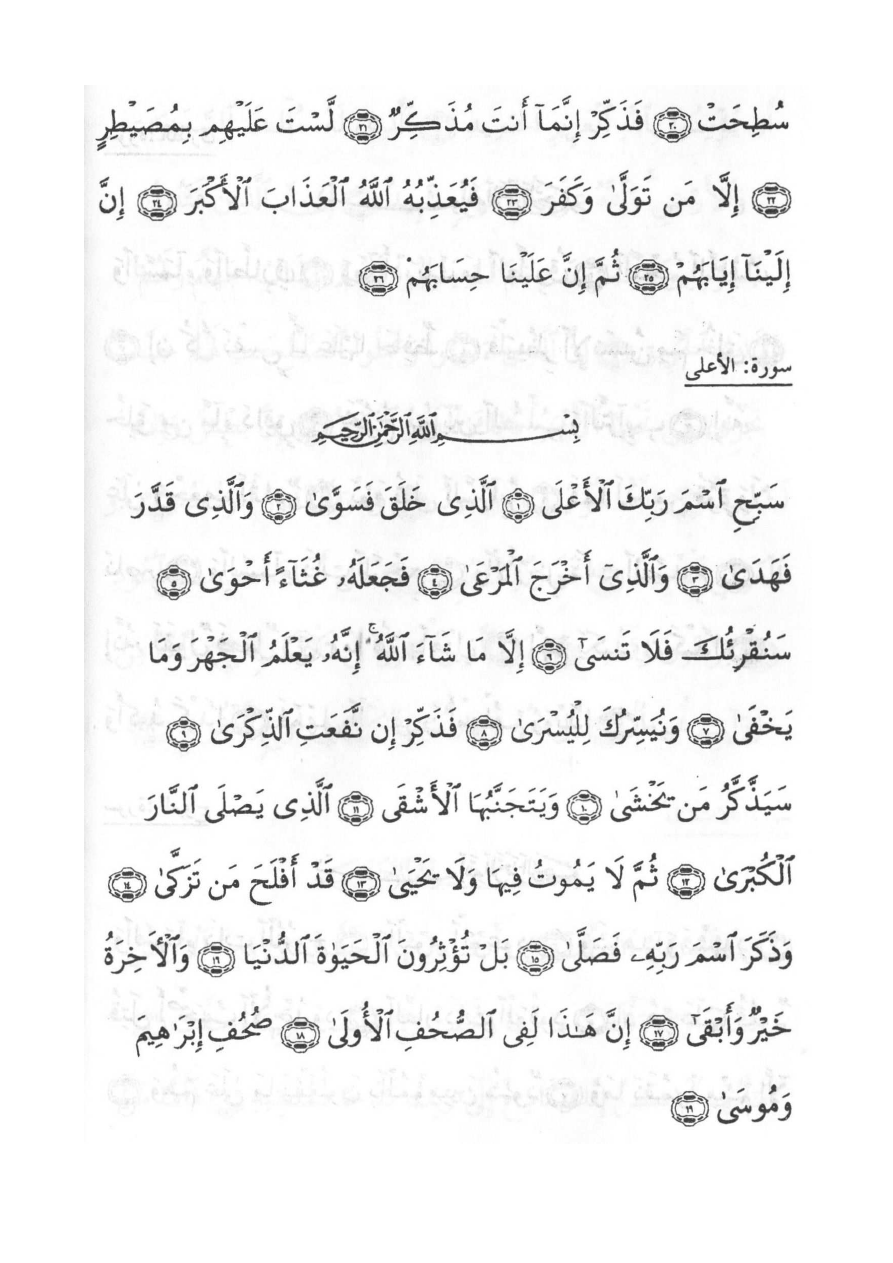 سُطِحَتْ ﴿٢٠﴾ فَذَكِّرْ إِنَّمَآ أَنتَ مُذَكِّرٌ ﴿٢١﴾ لَّسْتَ عَلَيْهِم بِمُصَيْطِرٍ
﴿٢٢﴾ إِلَّا مَن تَوَلَّىٰ وَكَفَرَ ﴿٢٣﴾ فَيُعَذِّبُهُ ٱللَّهُ ٱلْعَذَابَ ٱلْأَكْبَرَ ﴿٢٤﴾ إِنَّ
إِلَيْنَآ إِيَابَهُمْ ﴿٢٥﴾ ثُمَّ إِنَّ عَلَيْنَا حِسَابَهُمْ ﴿٢٦﴾
سورة: الأعلى
بِسْمِ ٱللَّهِ ٱلرَّحْمَٰنِ ٱلرَّحِيمِ
سَبِّحِ ٱسْمَ رَبِّكَ ٱلْأَعْلَى ﴿١﴾ ٱلَّذِى خَلَقَ فَسَوَّىٰ ﴿٢﴾ وَٱلَّذِى قَدَّرَ
فَهَدَىٰ ﴿٣﴾ وَٱلَّذِىٓ أَخْرَجَ ٱلْمَرْعَىٰ ﴿٤﴾ فَجَعَلَهُۥ غُثَآءً أَحْوَىٰ ﴿٥﴾
سَنُقْرِئُكَ فَلَا تَنسَىٰٓ ﴿٦﴾ إِلَّا مَا شَآءَ ٱللَّهُ ۚ إِنَّهُۥ يَعْلَمُ ٱلْجَهْرَ وَمَا
يَخْفَىٰ ﴿٧﴾ وَنُيَسِّرُكَ لِلْيُسْرَىٰ ﴿٨﴾ فَذَكِّرْ إِن نَّفَعَتِ ٱلذِّكْرَىٰ ﴿٩﴾
سَيَذَّكَّرُ مَن يَخْشَىٰ ﴿١٠﴾ وَيَتَجَنَّبُهَا ٱلْأَشْقَى ﴿١١﴾ ٱلَّذِى يَصْلَى ٱلنَّارَ
ٱلْكُبْرَىٰ ﴿١٢﴾ ثُمَّ لَا يَمُوتُ فِيهَا وَلَا يَحْيَىٰ ﴿١٣﴾ قَدْ أَفْلَحَ مَن تَزَكَّىٰ ﴿١٤﴾
وَذَكَرَ ٱسْمَ رَبِّهِۦ فَصَلَّىٰ ﴿١٥﴾ بَلْ تُؤْثِرُونَ ٱلْحَيَوٰةَ ٱلدُّنْيَا ﴿١٦﴾ وَٱلْأَخِرَةُ
خَيْرٌ وَأَبْقَىٰٓ ﴿١٧﴾ إِنَّ هَـٰذَا لَفِى ٱلصُّحُفِ ٱلْأُولَىٰ ﴿١٨﴾ صُحُفِ إِبْرَٰهِيمَ
وَمُوسَىٰ ﴿١٩﴾